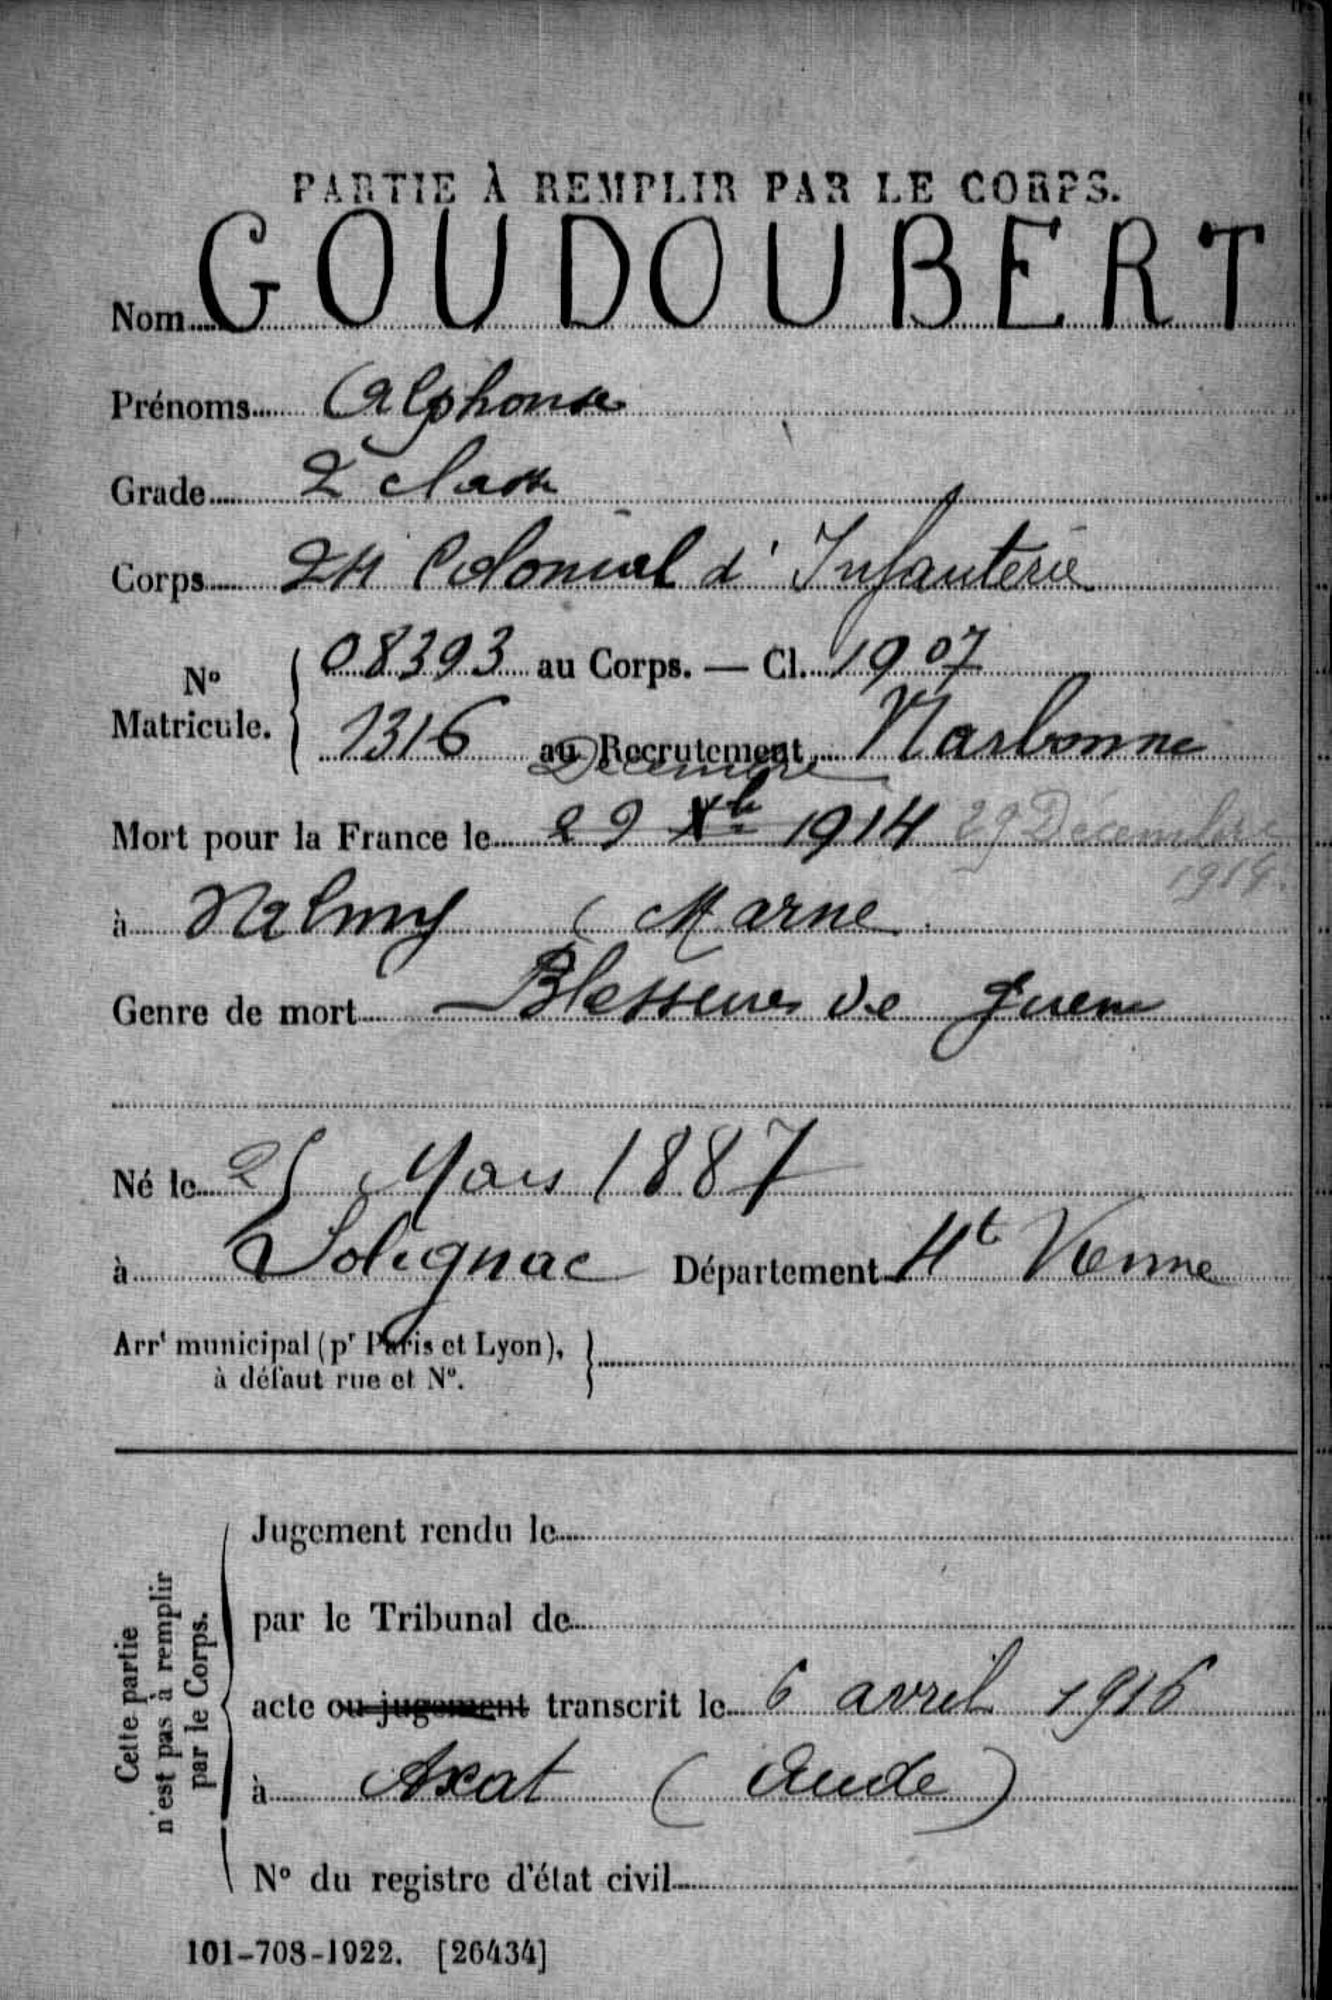 PARTIE À REMPLIR PAR LE CORPS.
Nom GOUDOUBERT
Prénoms Alphonse
Grade 2e classe
Corps 24 Colonial d'Infanterie
No Matricule. 08393 au Corps. — Cl. 1907
1316 au Recrutement Narbonne
Décembre
Mort pour la France le 29 Xbre 1914 29 Décembre
1914.
à Valmy (Marne
Genre de mort Blessures de guerre
Né le 25 Mars 1887
à Solignac Département Hte Vienne
Arrt municipal (pr Paris et Lyon),
à défaut rue et No.
Cette partie
n'est pas à remplir
par le Corps.
Jugement rendu le
par le Tribunal de
acte ou jugement transcrit le 6 avril 1916
à Axat (Aude)
No du registre d'état civil
101-708-1922. [26434]